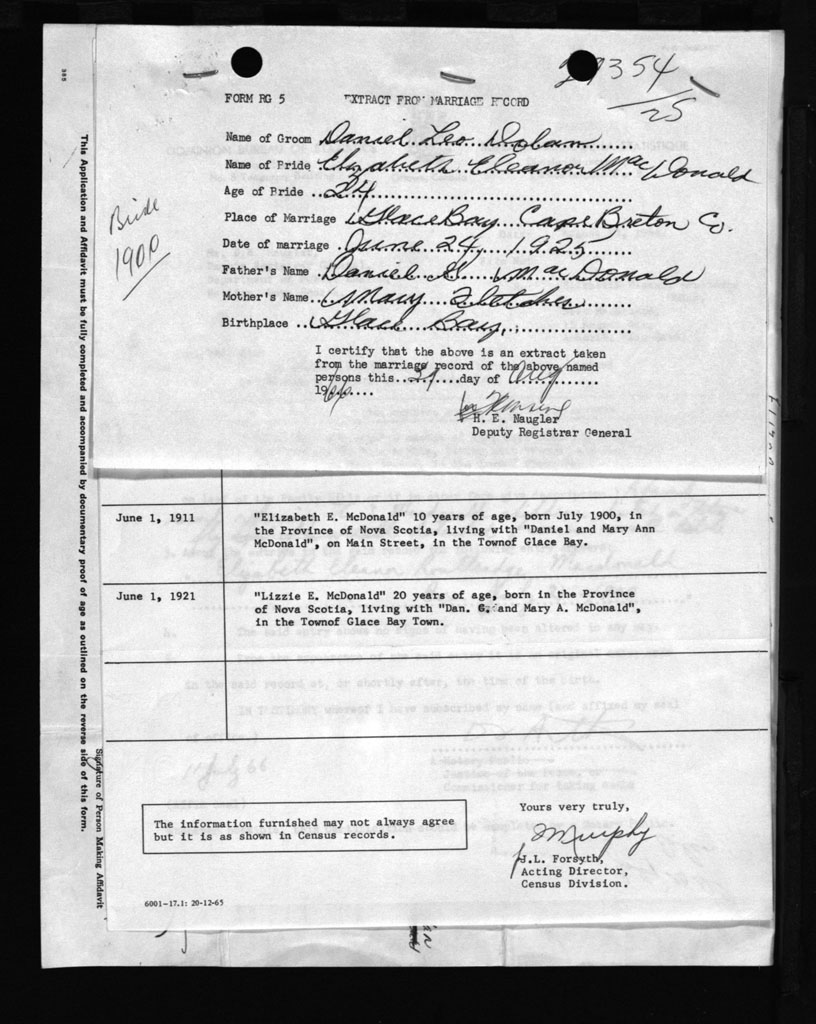 27354
/25
FORM RG 5 EXTRACT FROM MARRIAGE RECORD
Name of Groom Daniel Leo Dolan
Name of Bride Elizabeth Eleanor MacDonald
Age of Bride ..24
Place of Marriage Glace Bay Cape Breton Co.
Date of marriage June 24, 1925
Father's Name Daniel G. MacDonald
Mother's Name.. Mary Fletcher
Birthplace .. Glace Bay,
Bride
1900
I certify that the above is an extract taken
from the marriage record of the above named
persons this..29....day of Aug
1966....
H. E. Naugler
Deputy Registrar General
June 1, 1911 "Elizabeth E. McDonald" 10 years of age, born July 1900, in
the Province of Nova Scotia, living with "Daniel and Mary Ann
McDonald", on Main Street, in the Townof Glace Bay.
June 1, 1921 "Lizzie E. McDonald" 20 years of age, born in the Province
of Nova Scotia, living with "Dan. G. and Mary A. McDonald",
in the Townof Glace Bay Town.
The information furnished may not always agree
but it is as shown in Census records.
Yours very truly,
Murphy
J.L. Forsyth,
Acting Director,
Census Division.
6001-17.1: 20-12-65
This Application and Affidavit must be fully completed and accompanied by documentary proof of age as outlined on the reverse side of this form.
Signature of Person Making Affidavit